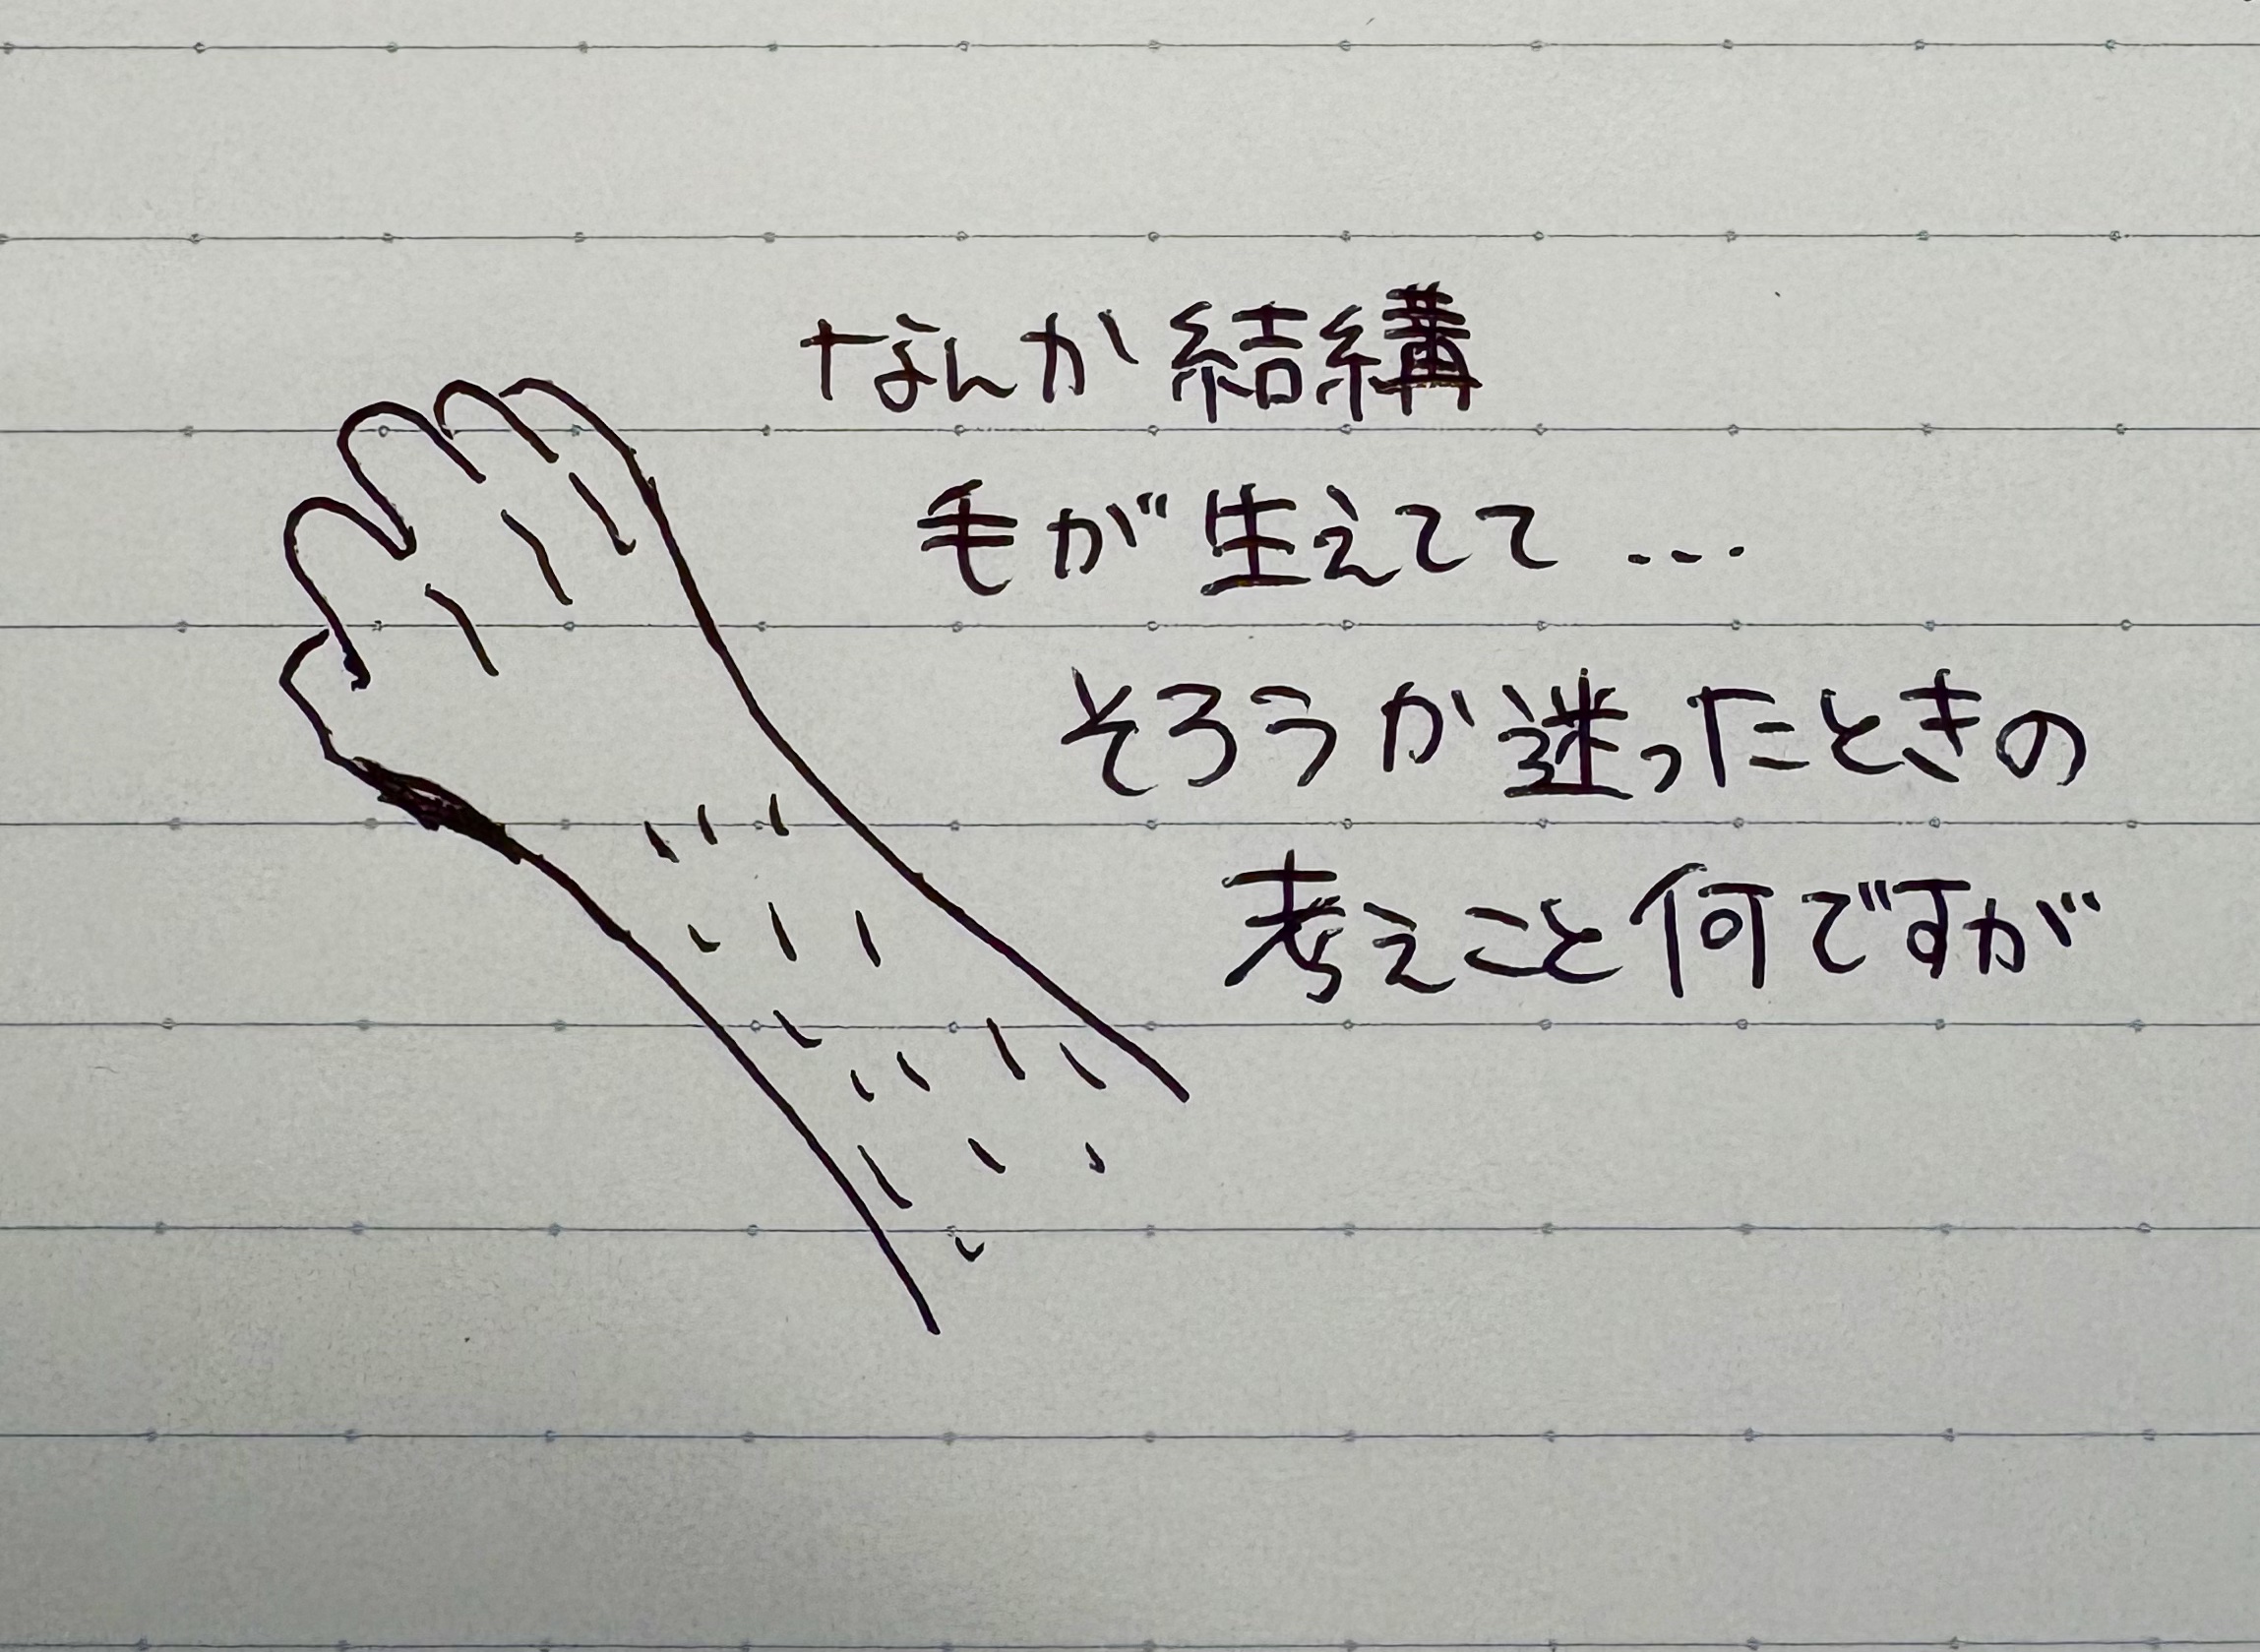 なんか結構
毛が生えてて...
そろうか迷ったときの
考えこと何ですが